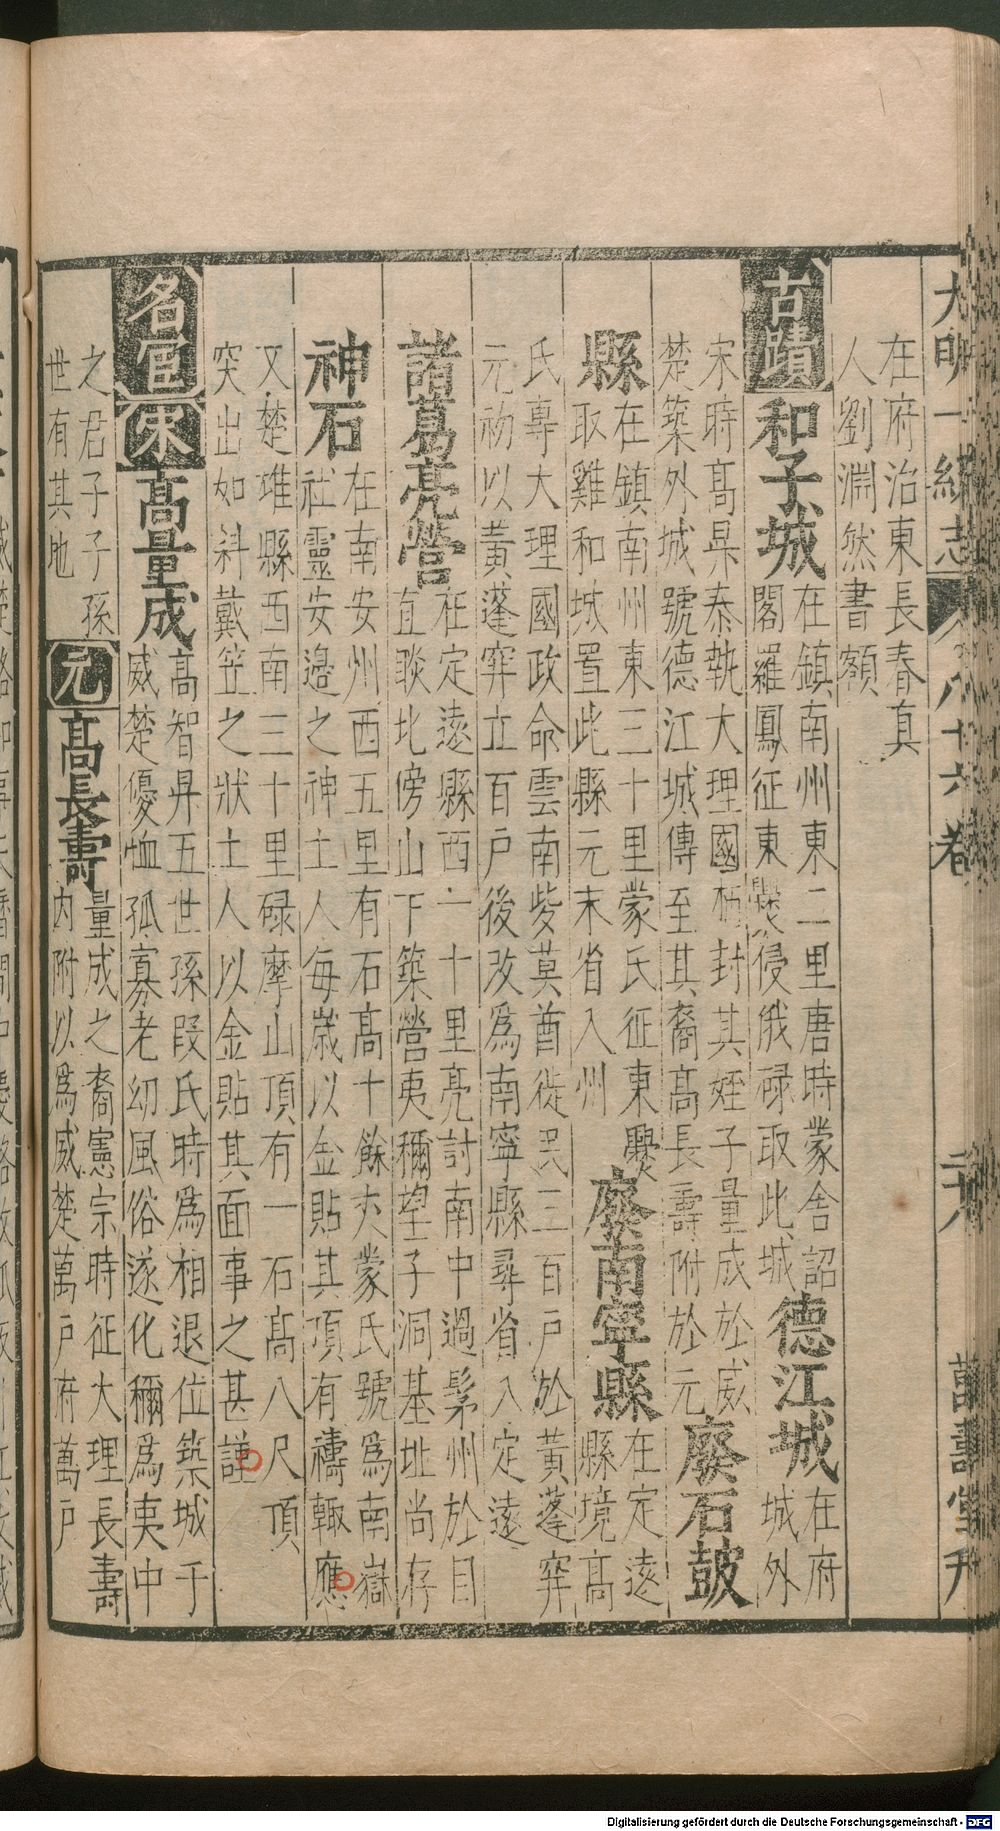 大明一統志 八十六卷 萬壽堂刊
在府治東長春真
人劉淵然書額
古蹟 和子城 在鎮南州東二里唐時蒙舍詔
閣羅鳳征東爨侵俄碌取此城 德江城 在府
城外
宋時高昇泰執大理國柄封其姪子量成於威
楚築外城號德江城傳至其裔高長壽附於元 廢石鼓
縣 在鎮南州東三十里蒙氏征東爨
取雞和城置此縣元末省入州 廢南寧縣 在定遠
縣境高
氏專大理國政命雲南㱔莫酋徙民三百戶於黃蓬穽
元初以黃蓬穽立百戶後改爲南寧縣尋省入定遠
諸葛亮營 在定遠縣西二十里亮討南中過髳州於目
直睒北傍山下築營夷稱望子洞基址尚存
神石 在南安州西五里有石高十餘丈蒙氏號爲南嶽
社靈安邊之神土人每歲以金貼其頂有禱輒應
又楚雄縣西南三十里碌摩山頂有一石高八尺頂
突出如斜戴笠之狀土人以金貼其面事之甚謹
名宦 宋 高量成 高智昇五世孫段氏時爲相退位築城于
威楚優恤孤寡老幼風俗遂化稱爲夷中
之君子子孫
世有其地 元 高長壽 量成之裔憲宗時征大理長壽
內附以爲威楚萬戶府萬戶
Digitalisierung gefördert durch die Deutsche Forschungsgemeinschaft - DFG